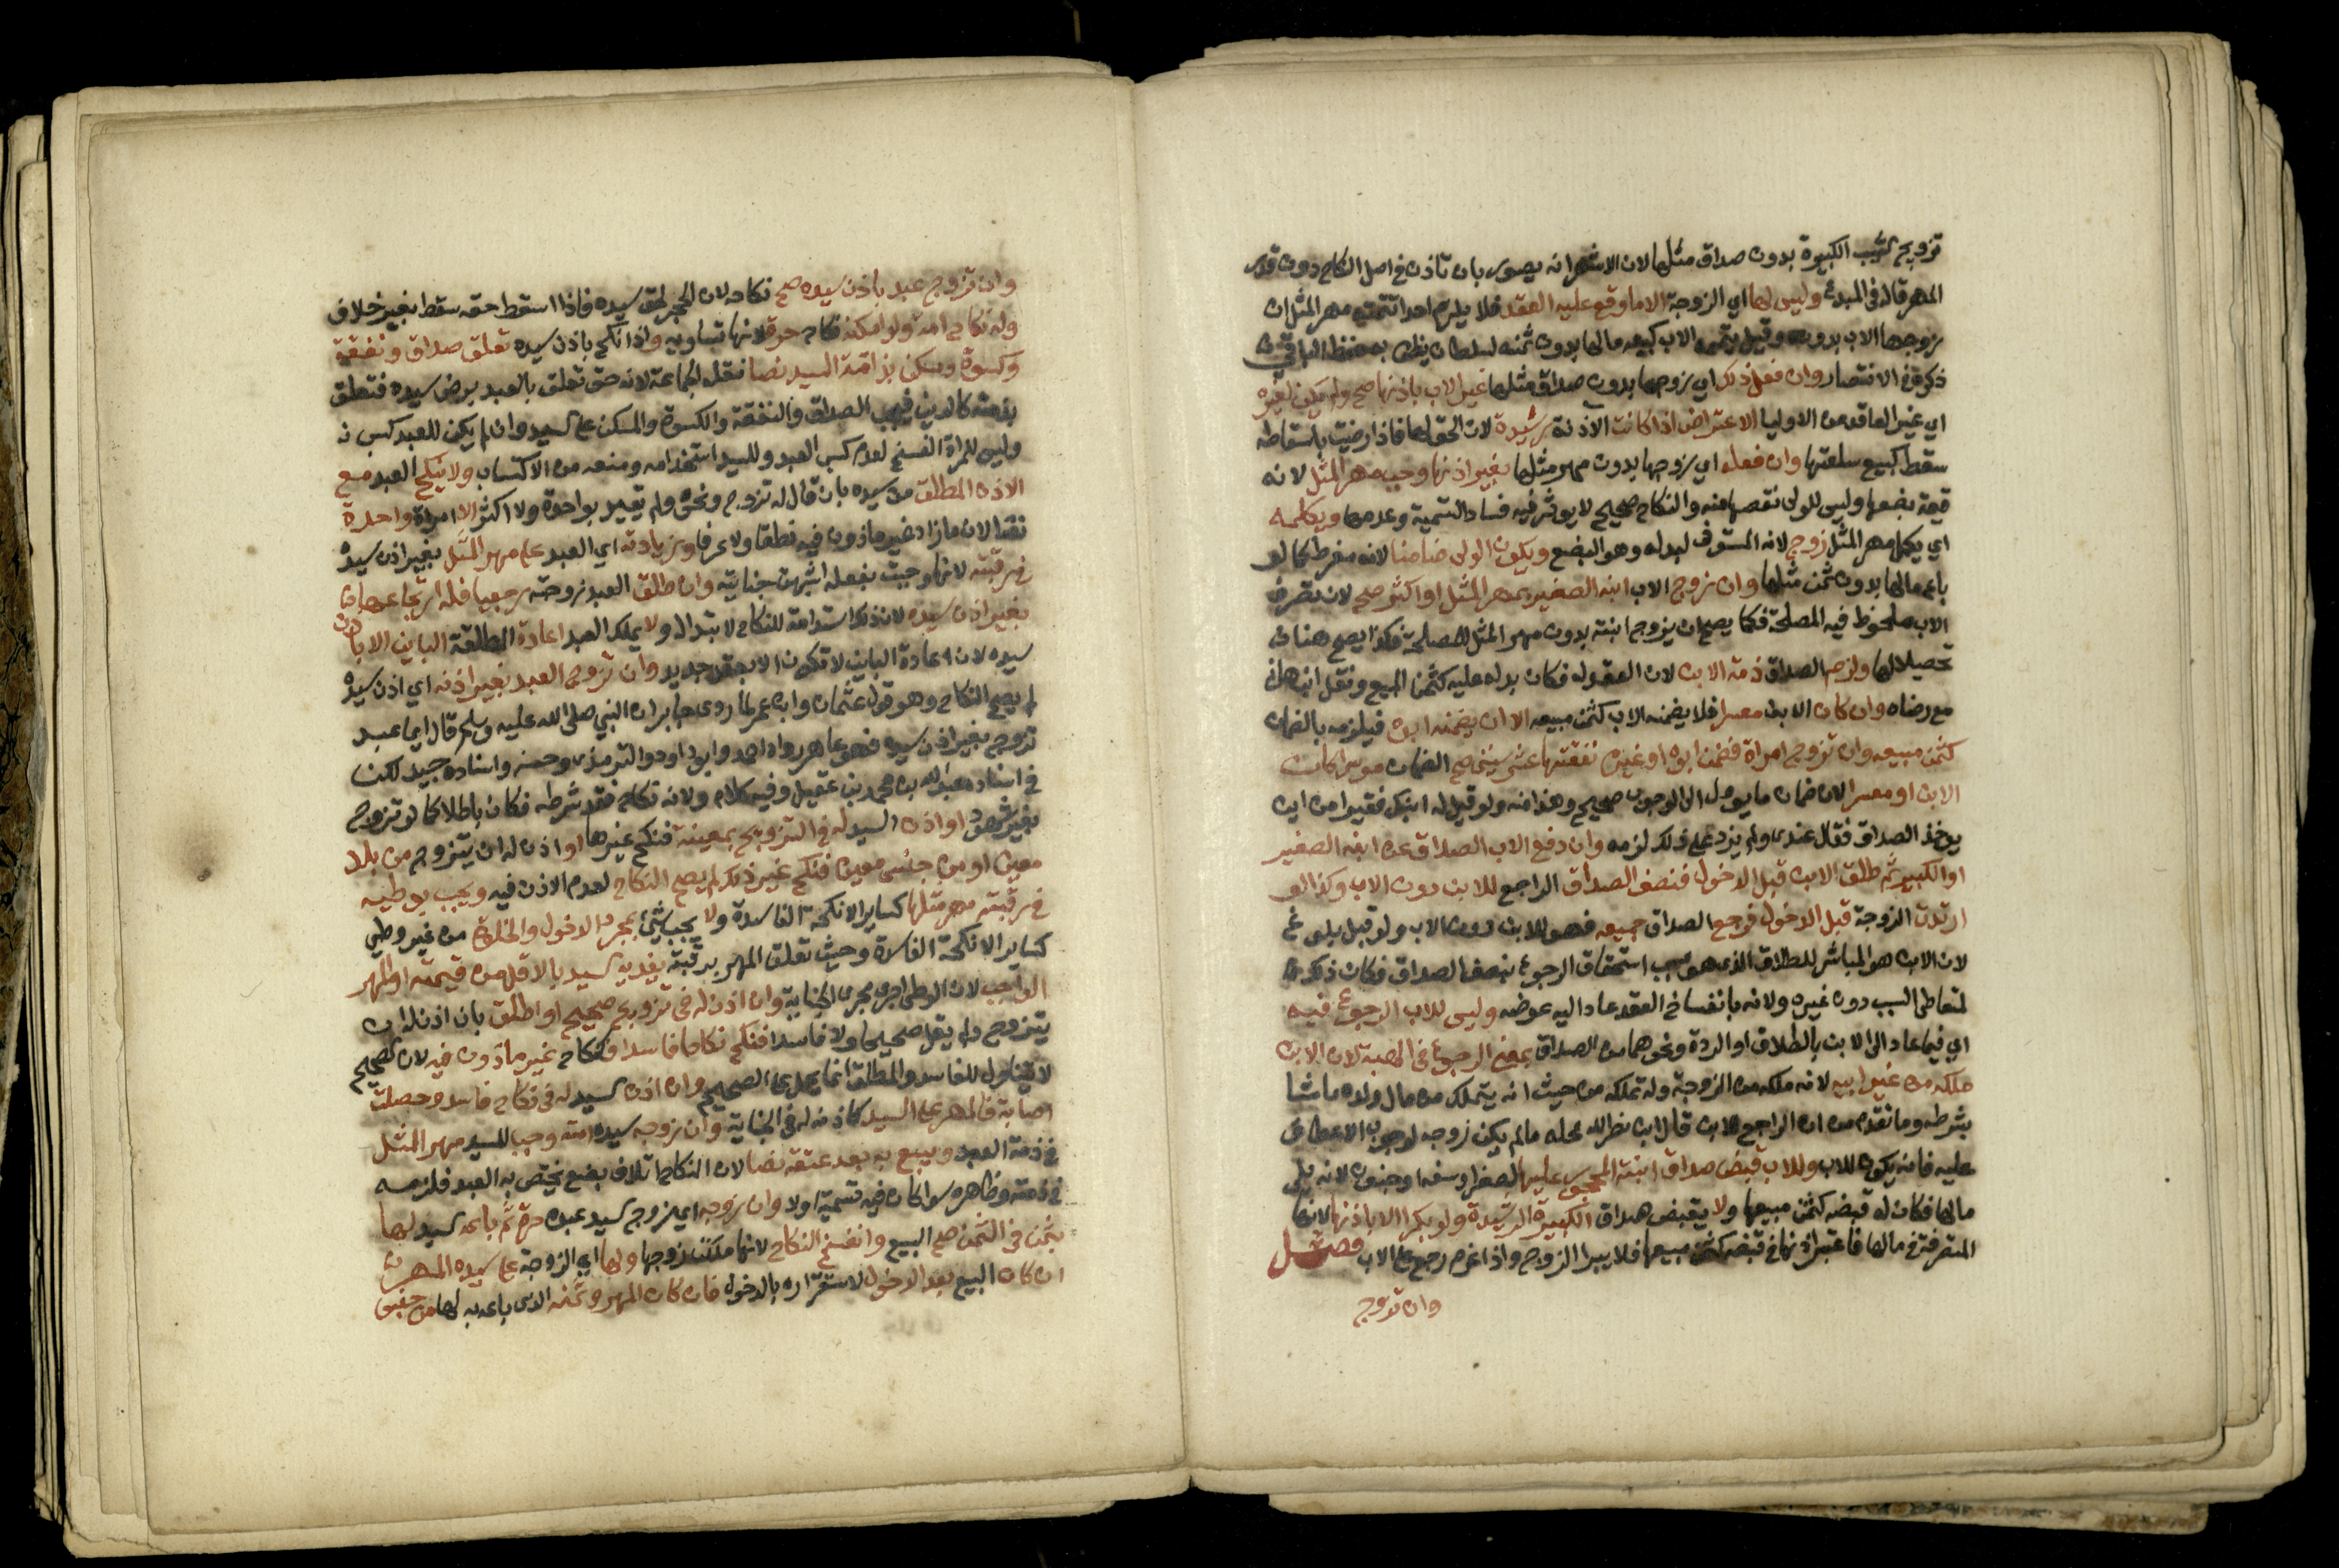 تزويج الثيب الكبيرة بدون صداق مثلها لان الاشهر انه يصور بان تاذن في اصل النكاح دون قدر
المهر قاله في المبدع وليس لها اي الزوجة الا ما وقع عليه العقد فلا يلزم احدا تتمته مهر المثل ان
زوجها الاب بدونه وقيل يتممه الاب كبيعه مالها بدون ثمنه لسلطان يظن به حفظ الباقي
ذكره في الانتصار وان فعل ذلك اي زوجها بدون صداق مثلها غير الاب باذنها صح ولم يكن لغيره
اي غير العاقد من الاوليا الاعتراض اذا كانت الاذنة رشيدة لان الحق لها فاذا رضيت باسقاطه
سقط كبيع سلعتها وان فعله اي زوجها بدون مهر مثلها بغير اذنها وجب مهر المثل لانه
قيمة بضعها وليس للولي نقصها منه والنكاح صحيح لا يوثر فيه فساد التسمية وعدمها ويكمله
اي يكمل مهر المثل زوج لانه المستوفي لبدله وهو البضع ويكون الولي ضامنا لانه مفرط كما لو
باع مالها بدون ثمن مثلها وان زوج الاب ابنه الصغير بمهر المثل او اكثر صح لان تصرف
الاب ملحوظ فيه المصلحة فكما يصح ان يزوج ابنته بدون مهر المثل للمصلحة فكذا يصح هنا
تحصيلا لها ولزم الصداق ذمة الابن لان العقد له فكان بدله عليه كثمن المبيع ونقل ابن هاني
مع رضاه وان كان الابن معسرا فلا يضمنه الاب كثمن مبيعه الا ان يضمنه ابوه فيلزمه بالضمان
كثمن مبيعه وان تزوج امراة فضمن ابوه او غيره نفقتها عشر سنين صح الضمان موسرا كان
الابن او معسرا لان ضمان ما يوول الى الوجوب صحيح وهذا منه ولو قيل له ابنك فقير من اين
يوخذ الصداق فقال عندي ولم يزد على ذلك لزمه وان دفع الاب الصداق عن ابنه الصغير
او الكبير ثم طلق الابن قبل الدخول فنصف الصداق الراجع للابن دون الاب وكذا لو
ارتدت الزوجة قبل الدخول فرجع الصداق جميعه فهو للابن دون الاب ولو قبل بلوغ
لان الابن هو المباشر للطلاق الذي هو سبب استحقاق الرجوع بنصف الصداق فكان ذلك
لمتعاطي السبب دون غيره ولانه بانفساخ العقد عاد اليه عوضه وليس للاب الرجوع فيه
اي فيما عاد الى الابن بالطلاق او الردة ونحوهما من الصداق بمعنى الرجوع في الهبة لان الابن
ملكه من غير ابيه لانه ملكه من الزوجة وله تملكه من حيث انه يتملك من مال ولده ما شا
بشرطه وما تقدم من ان الراجع للابن قال ابن نصر الله محله ما لم يكن زوجه لوجوب الاعفاف
عليه فانه يكون للاب وللاب قبض صداق ابنته المحجور عليها لصغر او سفه او جنون لانه يلي
مالها فكان له قبضه كثمن مبيعها ولا يقبض صداق الكبيرة الرشيدة ولو بكرا الا باذنها لانها
المتصرفة في مالها فاعتبر اذنها في قبضه كثمن مبيعها فلا يبرا الزوج واذا غرم رجع على الاب فصل
وان تزوج
وان تزوج عبد باذن سيده صح نكاحه لان الحجر لحق سيده فاذا اسقط حقه سقط بغير خلاف
وله نكاح امة ولو امكنه نكاح حرة لانها تساويه واذا نكح باذن سيده تعلق صداق ونفقة
وكسوة ومسكن بذمة السيد نصا نقله الجماعة لانه حق تعلق بالعبد برضى سيده فتعلق
بذمته كالدين فيجب الصداق والنفقة والكسوة والمسكن على السيد وان لم يكن للعبد كسب
وليس للمراة الفسخ لعدم كسب العبد وللسيد استخدامه ومنعه من الاكتساب ولا ينكح العبد مع
الاذن المطلق من سيده بان قال له تزوج ونحوه ولم يقيد بواحدة ولا اكثر الا امراة واحدة
نصا لان ما زاد غير ماذون فيه نطقا ولا عرفا وزيادته اي العبد على مهر المثل بغير اذن سيده
في رقبته لانها وجبت بفعله اشبهت جنايته وان طلق العبد زوجته رجعيا فله ارتجاعها
بغير اذن سيده لان ذلك استدامة للنكاح لا ابتدا له ولا يملك العبد اعادة المطلقة الباين الا باذن
سيده لان اعادة الباين لا تكون الا بعقد جديد وان تزوج العبد بغير اذنه اي اذن سيده
لم يصح النكاح وهو قول عثمان وابن عمر لما روى جابر ان النبي صلى الله عليه وسلم قال ايما عبد
تزوج بغير اذن سيده فهو عاهر رواه احمد وابو داود والترمذي وحسنه واسناده جيد لكن
في اسناده عبد الله بن محمد بن عقيل وفيه كلام ولانه نكاح فقد شرطه فكان باطلا كما لو تزوج
بغير شهود او اذن السيد له في التزويج بمعينة فنكح غيرها او اذن له ان يتزوج من بلد
معين او من جنس معين فنكح غير ذلك لم يصح النكاح لعدم الاذن فيه ويجب بوطيه
في رقبته مهر مثلها كساير الانكحة الفاسدة ولا يجب شيئ بمجرد الدخول والخلوة من غير وطي
كساير الانكحة الفاسدة وحيث تعلق المهر برقبته يفديه السيد بالاقل من قيمته او المهر
الواجب لان الوطي اجري مجرى الجناية وان اذن له في تزويج صحيح او اطلق بان اذن له ان
يتزوج ولم يقل صحيحا ولا فاسدا فنكح نكاحا فاسدا فنكاح غير ماذون فيه لان الصحيح
لا يتناول للفاسد والمطلق انما يحمل على الصحيح وان اذن السيد له في نكاح فاسد وحصلت
اصابة فالمهر على السيد كاذنه له في الجناية وان زوجه سيده امته وجب للسيد مهر المثل
في ذمة العبد ويتبع به بعد عتقه نصا لان النكاح اتلاف بضع يختص به العبد فلزمه
في ذمته وظاهره سوا كان فيه تسمية اولا وان زوجه اي زوج السيد عبده حرة ثم باعه السيد لها
بثمن في الثمن صح البيع وانفسخ النكاح لانها ملكت زوجها ولها اي الزوجة على سيده المهر
ان كان البيع بعد الدخول لاستقراره بالدخول فان كان المهر وثمنه الذي باعه به لها من جنس